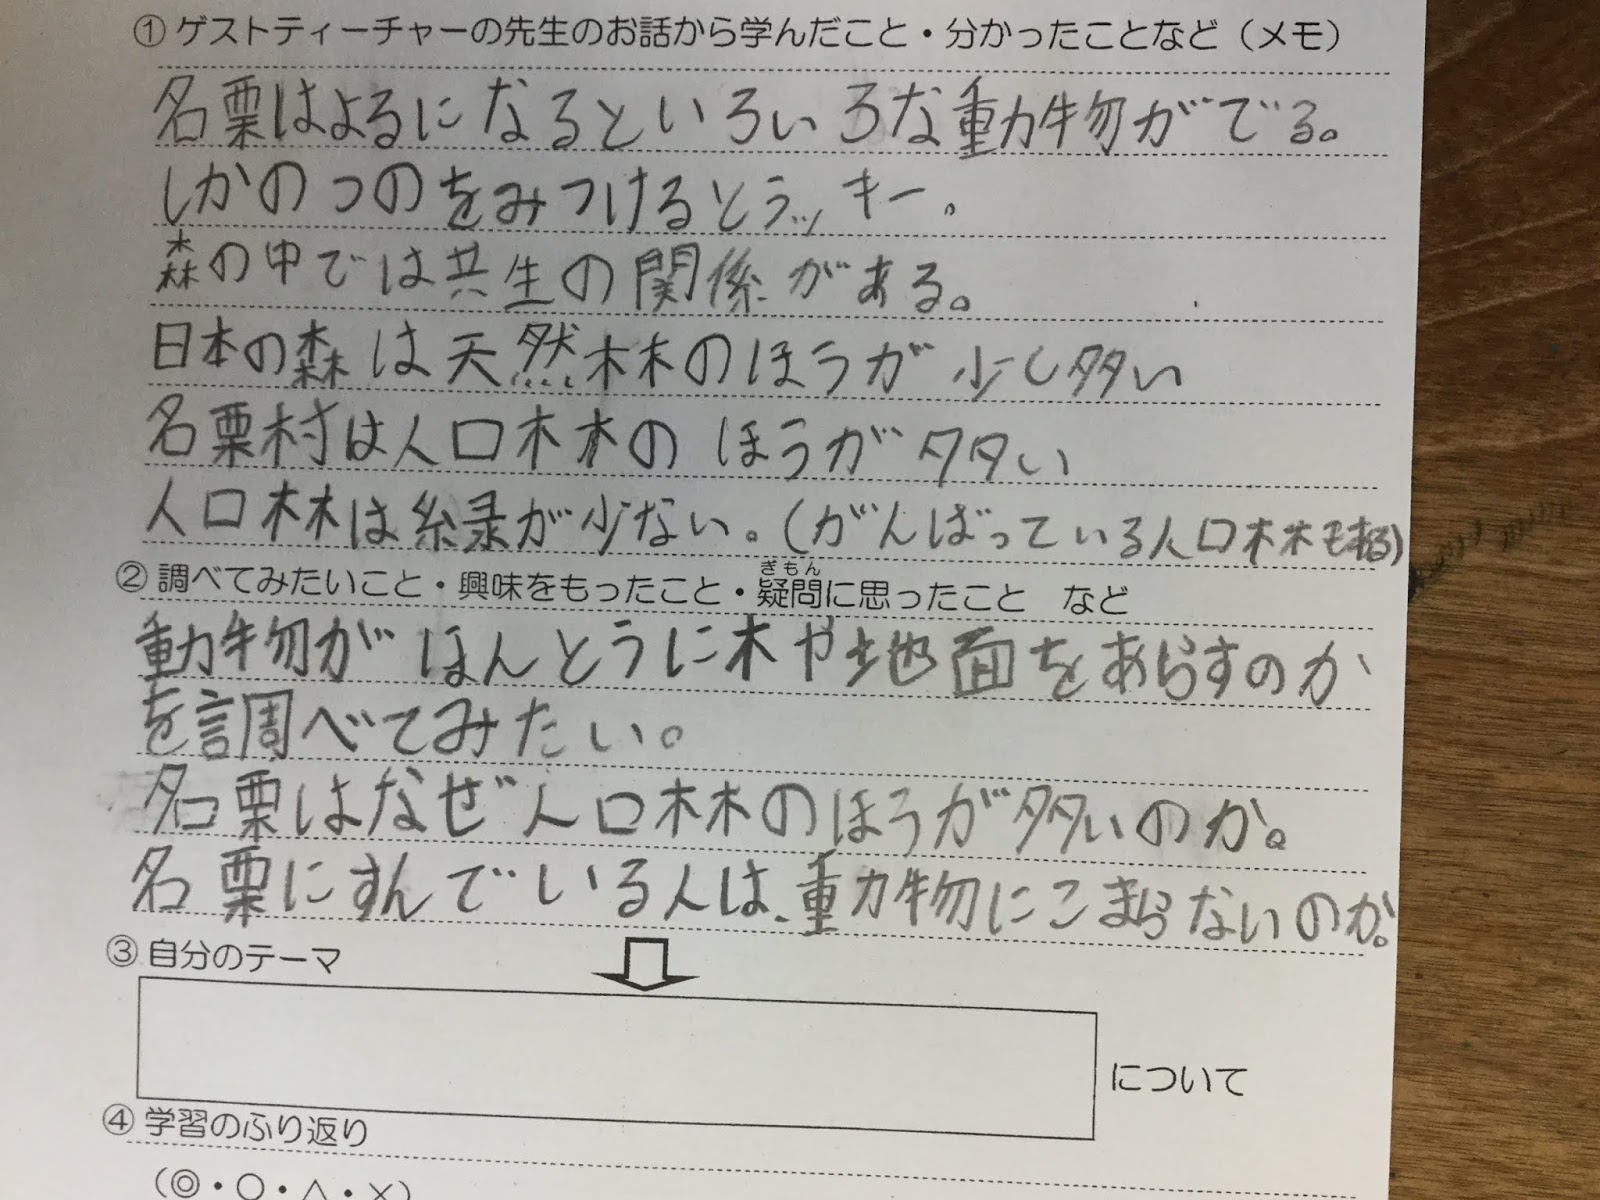 ① ゲストティーチャーの先生のお話から学んだこと・分かったことなど（メモ）
名栗はよるになるといろいろな動物がでる。
しかのつのをみつけるとラッキー。
森の中では共生の関係がある。
日本の森は天然林のほうが少し多い
名栗村は人口林のほうが多い
人口林は緑が少ない。(がんばっている人口林もある)
② 調べてみたいこと・興味をもったこと・疑問に思ったこと　など
ぎもん
動物がほんとうに木や地面をあらすのか
を調べてみたい。
名栗はなぜ人口林のほうが多いのか。
名栗にすんでいる人は、動物にこまらないのか。
③ 自分のテーマ
について
④ 学習のふり返り
（◎・○・△・×）